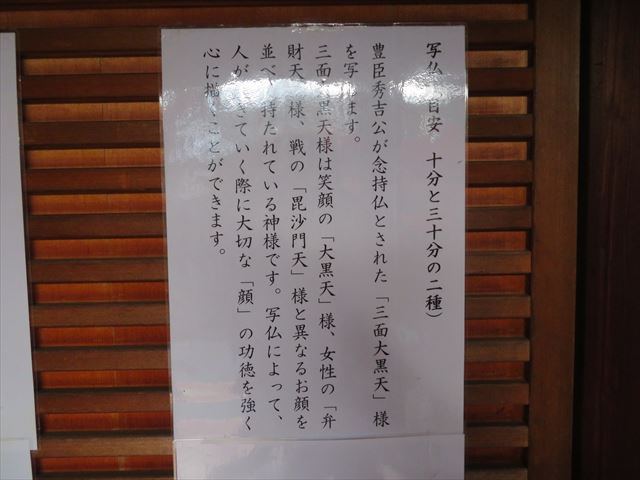 写仏 目安 十分と三十分の二種）
豊臣秀吉公が念持仏とされた「三面大黒天」様
を写します。
三面大黒天様は笑顔の「大黒天」様、女性の「弁
財天」様、戦の「毘沙門天」様と異なるお顔を
並べ 持たれている神様です。写仏によって、
人が生きていく際に大切な「顔」の功徳を強く
心に描くことができます。